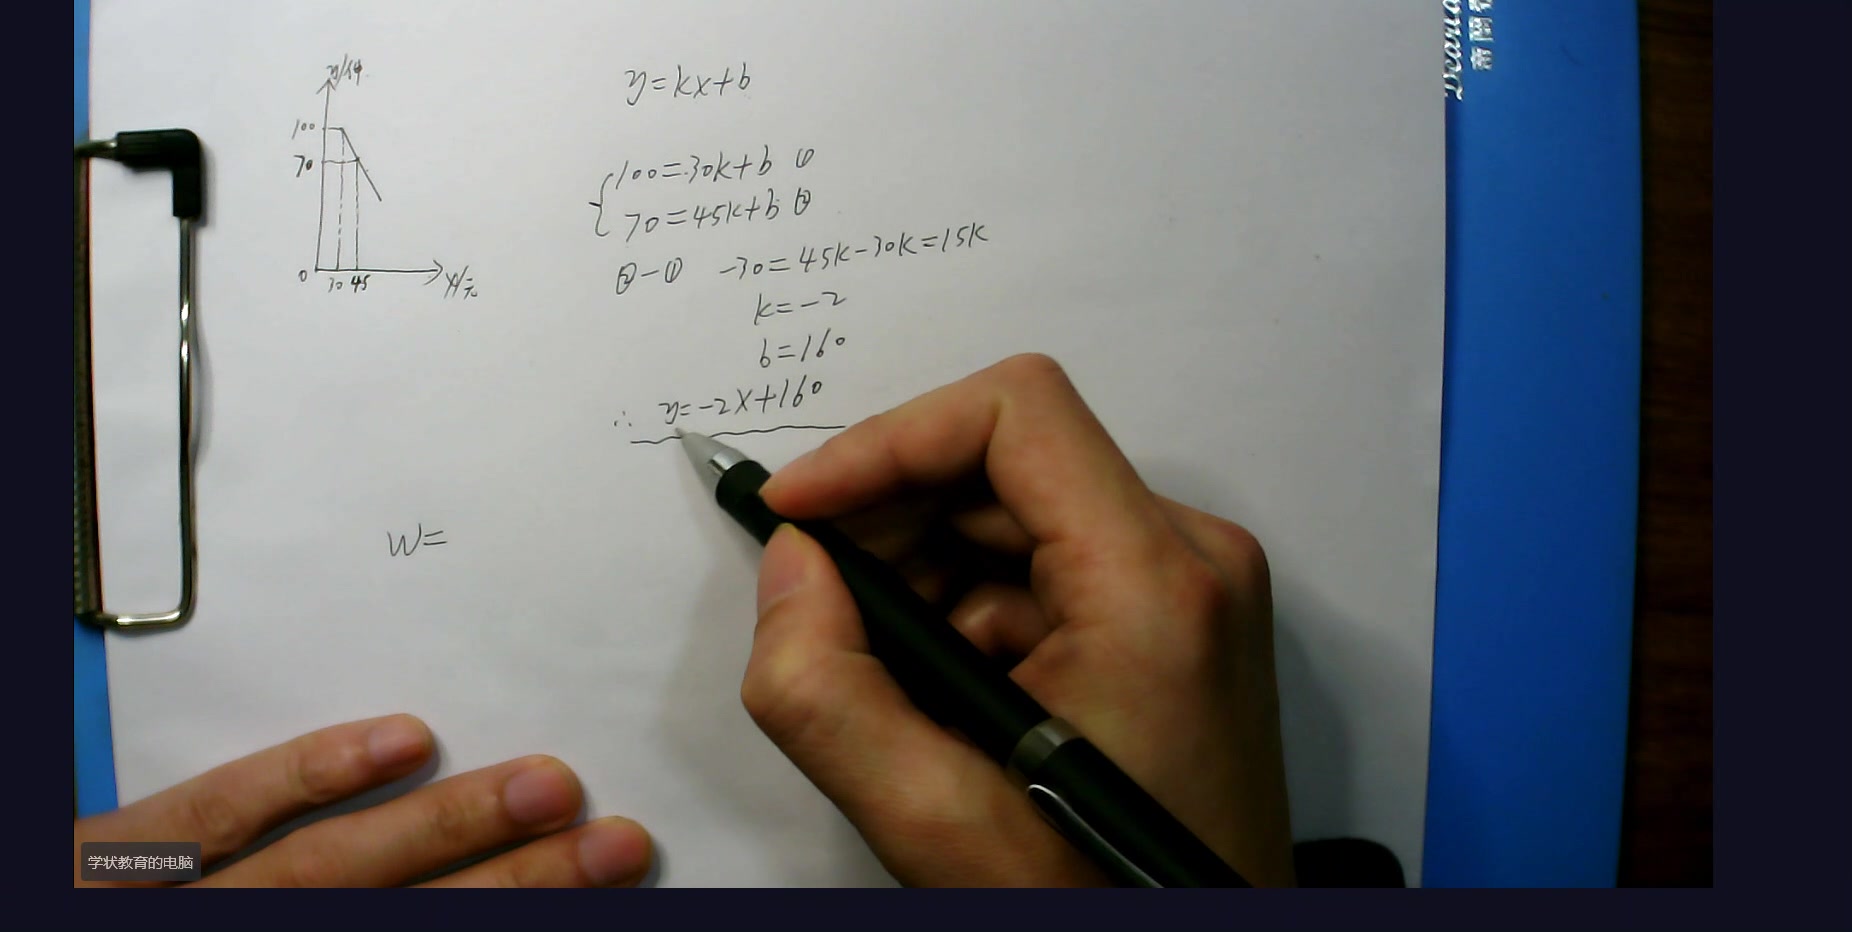 y/件
100
70
0
30 45
x/元
y=kx+b
100=30k+b ①
70=45k+b ②
②-① -30=45k-30k=15k
k=-2
b=160
∴ y=-2x+160
W=
学状教育的电脑